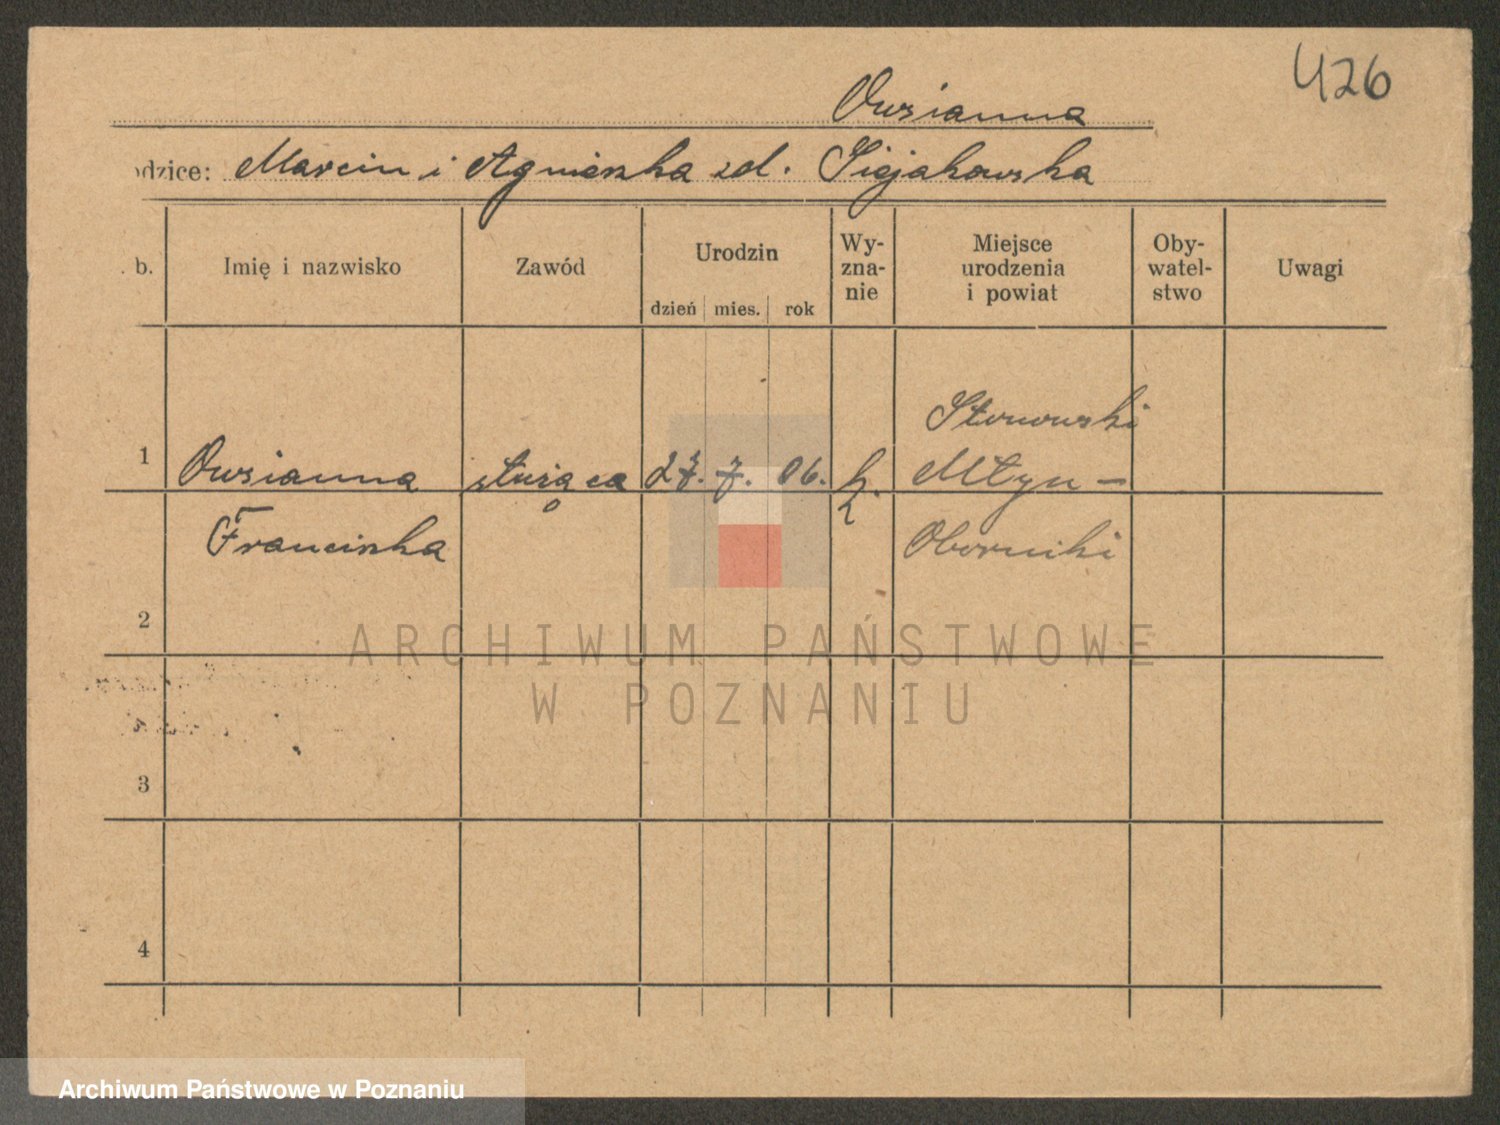 426
Owsianna
odzice: Marcin i Agnieszka zd.
b. Imię i nazwisko Zawód Urodzin Wy-zna-nie Miejsce urodzenia i powiat Oby-watel-stwo Uwagi
dzień mies. rok
1 Owsianna służąca 27. 7. 06. k. Młyn -
Franciszka Oborniki
2
3
4
ARCHIWUM PAŃSTWOWE
W POZNANIU
Archiwum Państwowe w Poznaniu